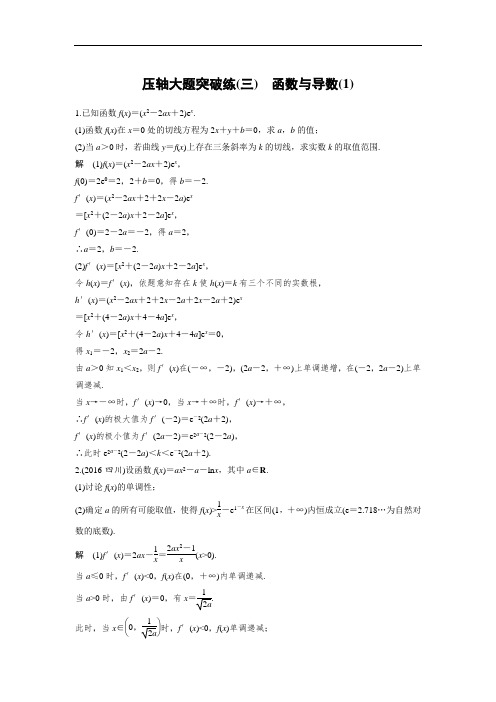 压轴大题突破练(三) 函数与导数(1)
1.已知函数 f(x)=(x²-2ax+2)eˣ.
(1)函数 f(x)在 x=0 处的切线方程为 2x+y+b=0，求 a，b 的值；
(2)当 a>0 时，若曲线 y=f(x)上存在三条斜率为 k 的切线，求实数 k 的取值范围.
解 (1)f(x)=(x²-2ax+2)eˣ，
f(0)=2e⁰=2，2+b=0，得 b=-2.
f′(x)=(x²-2ax+2+2x-2a)eˣ
=[x²+(2-2a)x+2-2a]eˣ，
f′(0)=2-2a=-2，得 a=2，
∴a=2，b=-2.
(2)f′(x)=[x²+(2-2a)x+2-2a]eˣ，
令 h(x)=f′(x)，依题意知存在 k 使 h(x)=k 有三个不同的实数根，
h′(x)=(x²-2ax+2+2x-2a+2x-2a+2)eˣ
=[x²+(4-2a)x+4-4a]eˣ，
令 h′(x)=[x²+(4-2a)x+4-4a]eˣ=0，
得 x₁=-2，x₂=2a-2.
由 a>0 知 x₁<x₂，则 f′(x)在(-∞，-2)，(2a-2，+∞)上单调递增，在(-2，2a-2)上单
调递减.
当 x→-∞时，f′(x)→0，当 x→+∞时，f′(x)→+∞，
∴f′(x)的极大值为 f′(-2)=e⁻²(2a+2)，
f′(x)的极小值为 f′(2a-2)=e²ᵃ⁻²(2-2a)，
∴此时 e²ᵃ⁻²(2-2a)<k<e⁻²(2a+2).
2.(2016·四川)设函数 f(x)=ax²-a-ln x，其中 a∈R.
(1)讨论 f(x)的单调性；
(2)确定 a 的所有可能取值，使得 f(x)>1/x-e¹⁻ˣ在区间(1，+∞)内恒成立(e=2.718…为自然对
数的底数).
解 (1)f′(x)=2ax-1/x=(2ax²-1)/x(x>0).
当 a≤0 时，f′(x)<0，f(x)在(0，+∞)内单调递减.
当 a>0 时，由 f′(x)=0，有 x=1/√(2a).
此时，当 x∈(0，1/√(2a))时，f′(x)<0，f(x)单调递减；